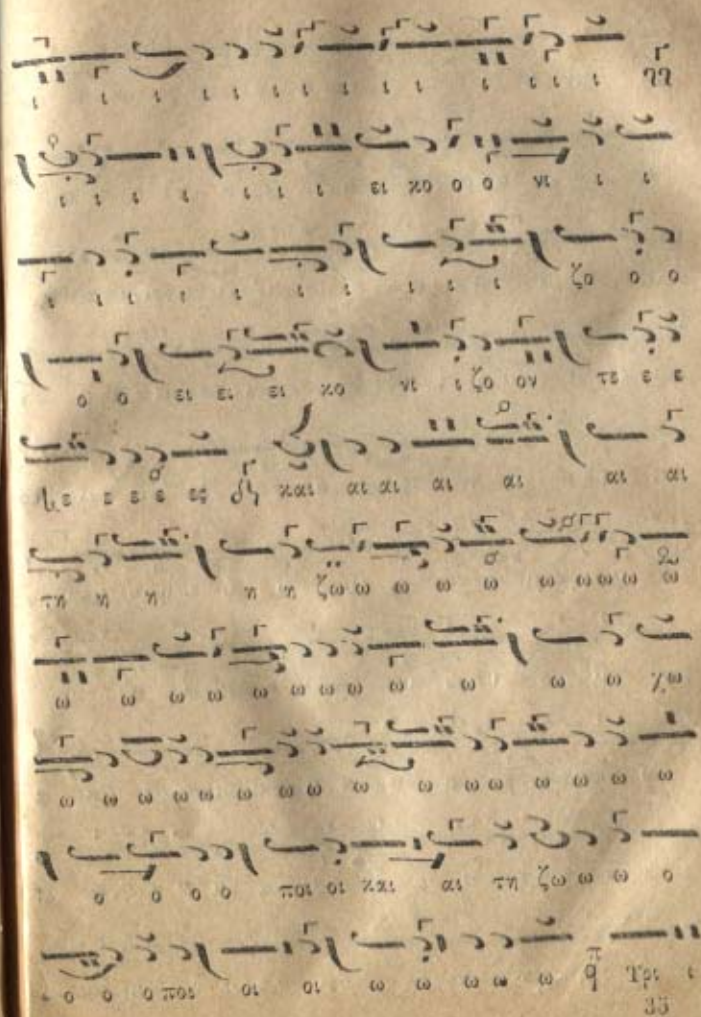 ι ι ι ι ι ι ι ι ι ι ι ι ι ι
ι ι ι ι ι ι ι ει κο ο ο νι ι ι
ι ι ι ι ι ι ι ι ι ι ζο ο ο
ο ο ει ει ει κο νι ι ζο ον τε ε ε
ε ε ε ε ες και αι αι αι αι αι αι
τη η η η η ζω ω ω ω ω ω ω ω ω ω
ω ω ω ω ω ω ω ω ω ω ω χω
ω ω ω ω ω ω ω ω ω ω ω ω ω ω ω
ο ο ο ο ποι οι και αι τη ζω ω ω ο
ο ο ο ποι οι οι ω ω ω ω ω Τρι ι
33